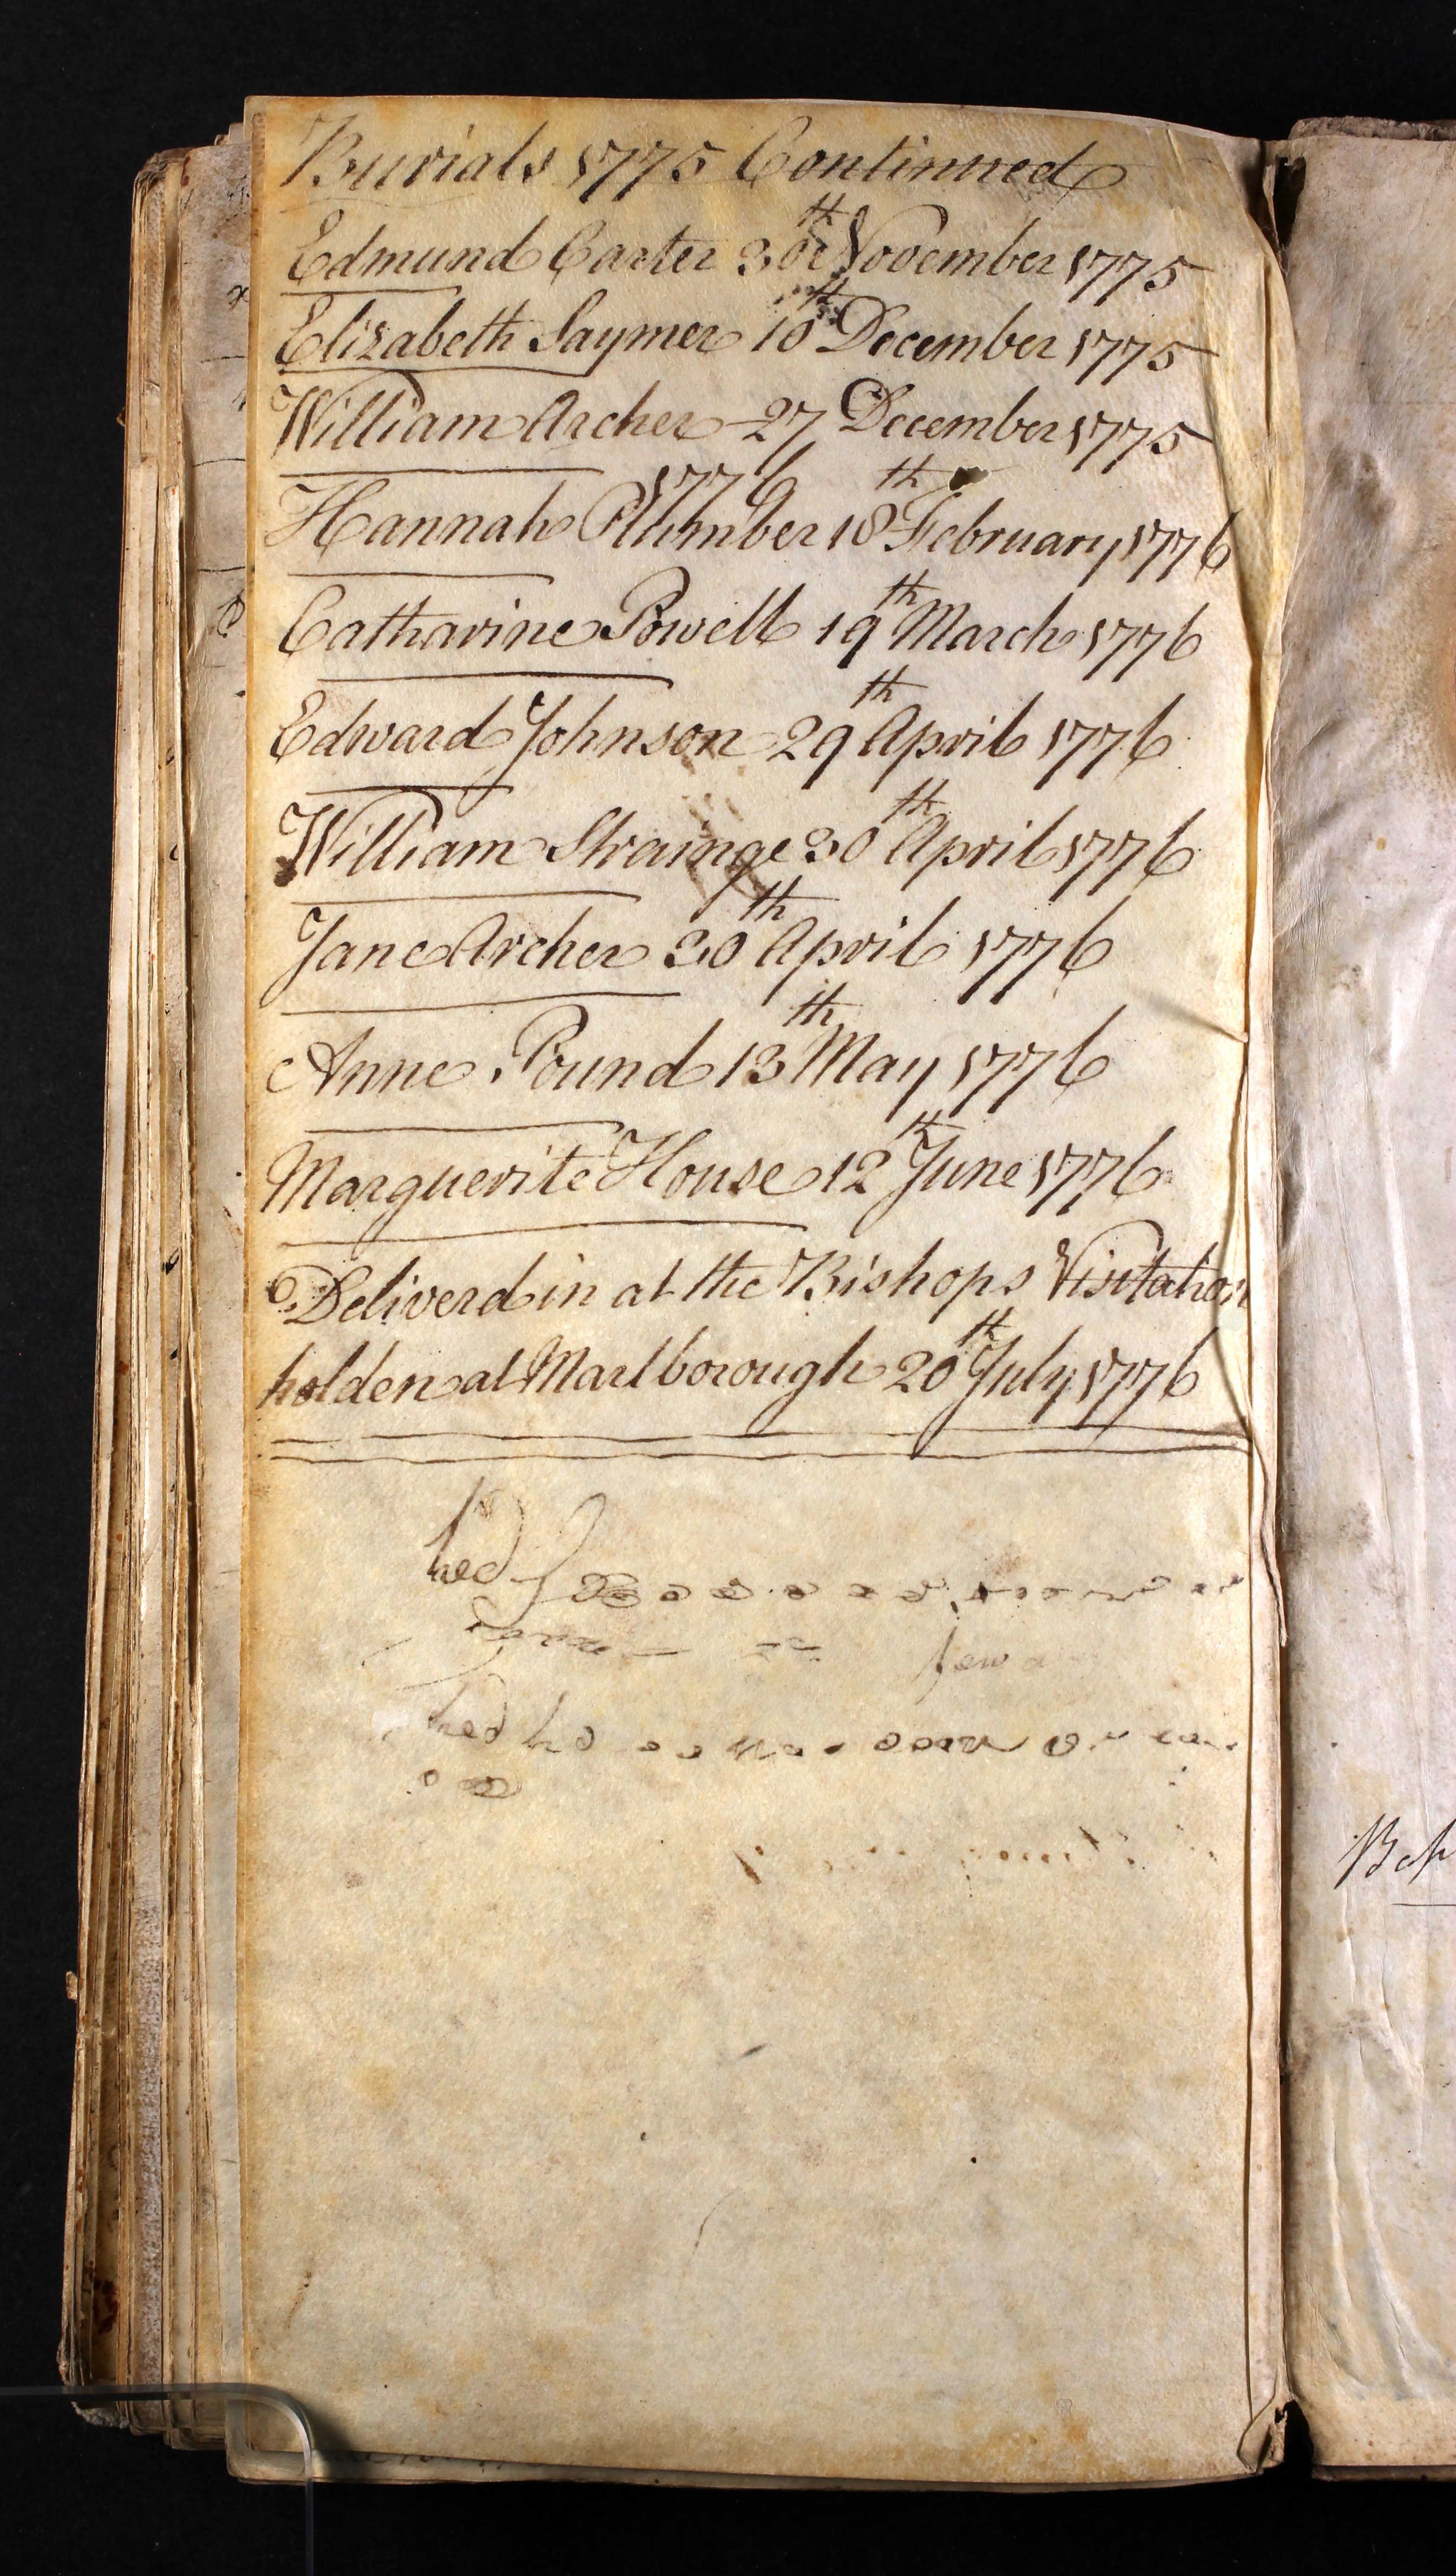 Burials 1775 Continued
Edmund Carter 30th November 1775
Elizabeth Saymer 10th December 1775
William Archer 27 December 1775
1776
Hannah Plumber 18th February 1776
Catharine Powell 19th March 1776
Edward Johnson 29th April 1776
William Strainge 30th April 1776
Jane Archer 30th April 1776
Anne Pound 13th May 1776
Marguerite House 12th June 1776
Deliverd in at the Bishops Visitation
holden at Marlborough 20th July 1776